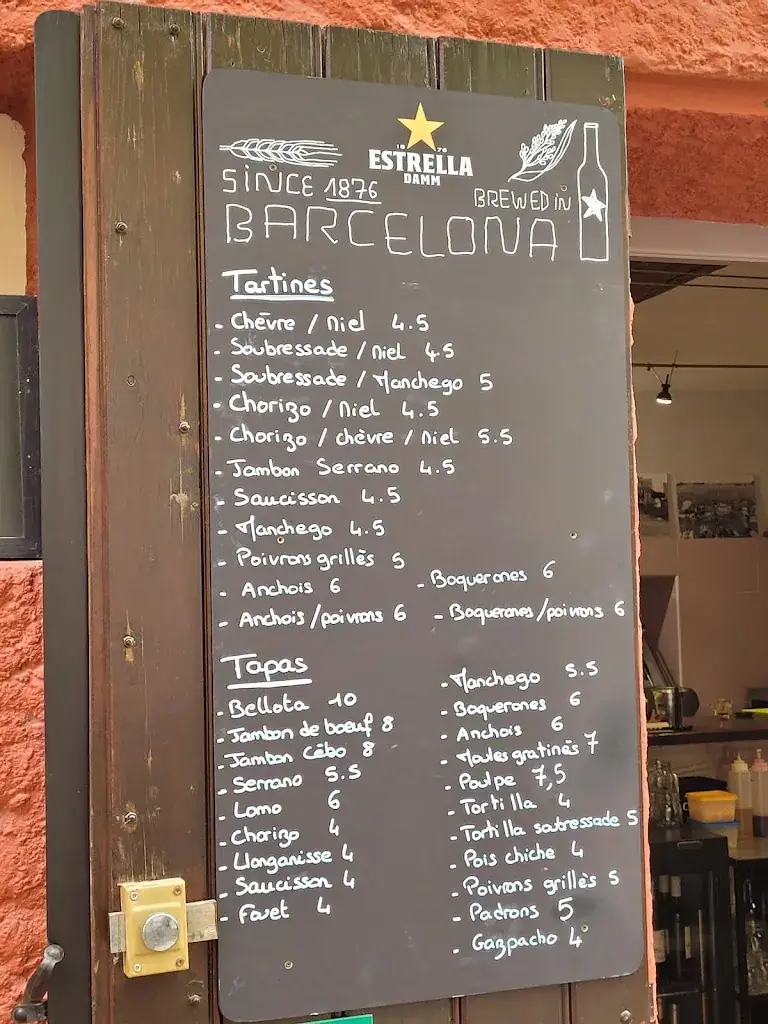 18 76
ESTRELLA
DAMM
SINCE 1876
BREWED IN
BARCELONA
Tartines
- Chèvre / Miel 4.5
- Soubressade / Miel 4.5
- Soubressade / Manchego 5
- Chorizo / Miel 4.5
- Chorizo / chèvre / Miel 5.5
- Jambon Serrano 4.5
- Saucisson 4.5
- Manchego 4.5
- Poivrons grillés 5
- Anchois 6
- Boquerones 6
- Anchois / poivrons 6
- Boquerones / poivrons 6
Tapas
- Bellota 10
- Jambon de boeuf 8
- Jambon Cébo 8
- Serrano 5.5
- Lomo 6
- Chorizo 4
- Llonganisse 4
- Saucisson 4
- Fouet 4
- Manchego 5.5
- Boquerones 6
- Anchois 6
- Moules gratinés 7
- Poulpe 7,5
- Tortilla 4
- Tortilla soubressade 5
- Pois chiche 4
- Poivrons grillés 5
- Padrons 5
- Gazpacho 4